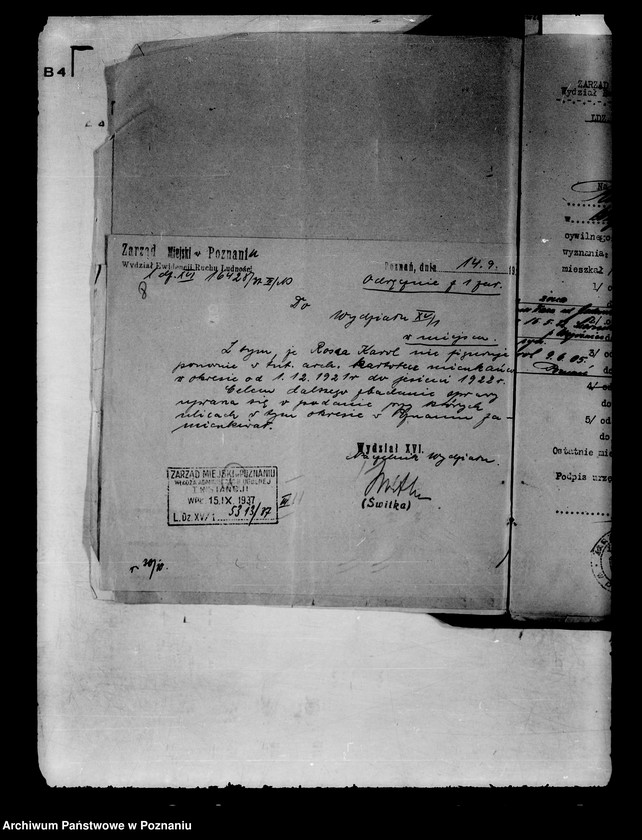 B4
Zarząd Miejski w Poznaniu
Wydział Ewidencji Ruchu Ludności
L. dz. XVI 16428/37
8
Poznań, dnia 14.9. 19
Odręcznie z 1 zał.
Do
Wydziału XV/1
w miejscu.
Z tym, że Rosza Karol nie figuruje
ponownie w tut. arch. kartotece mieszkańców
w okresie od 1.12.1921r do jesieni 1922r.
Celem dalszego zbadania sprawy
uprasza się o podanie przy których
ulicach w tym okresie w Poznaniu za-
mieszkiwał.
Wydział XVI.
Naczelnik Wydziału.
(Switka)
ZARZĄD MIEJSKI w POZNANIU
WŁADZA ADMINISTRACJI OGÓLNEJ
I INSTANCJI
WPŁ. 15.IX.1937
L. Dz. XV/1 5313/37
ZARZĄD
Wydział
LDZ
Na
w
cywilnego
wyznania
mieszkał
1/ o
3/ od
do
4/ od
do
5/ od
do
Ostatnie mie
Podpis urz
Archiwum Państwowe w Poznaniu